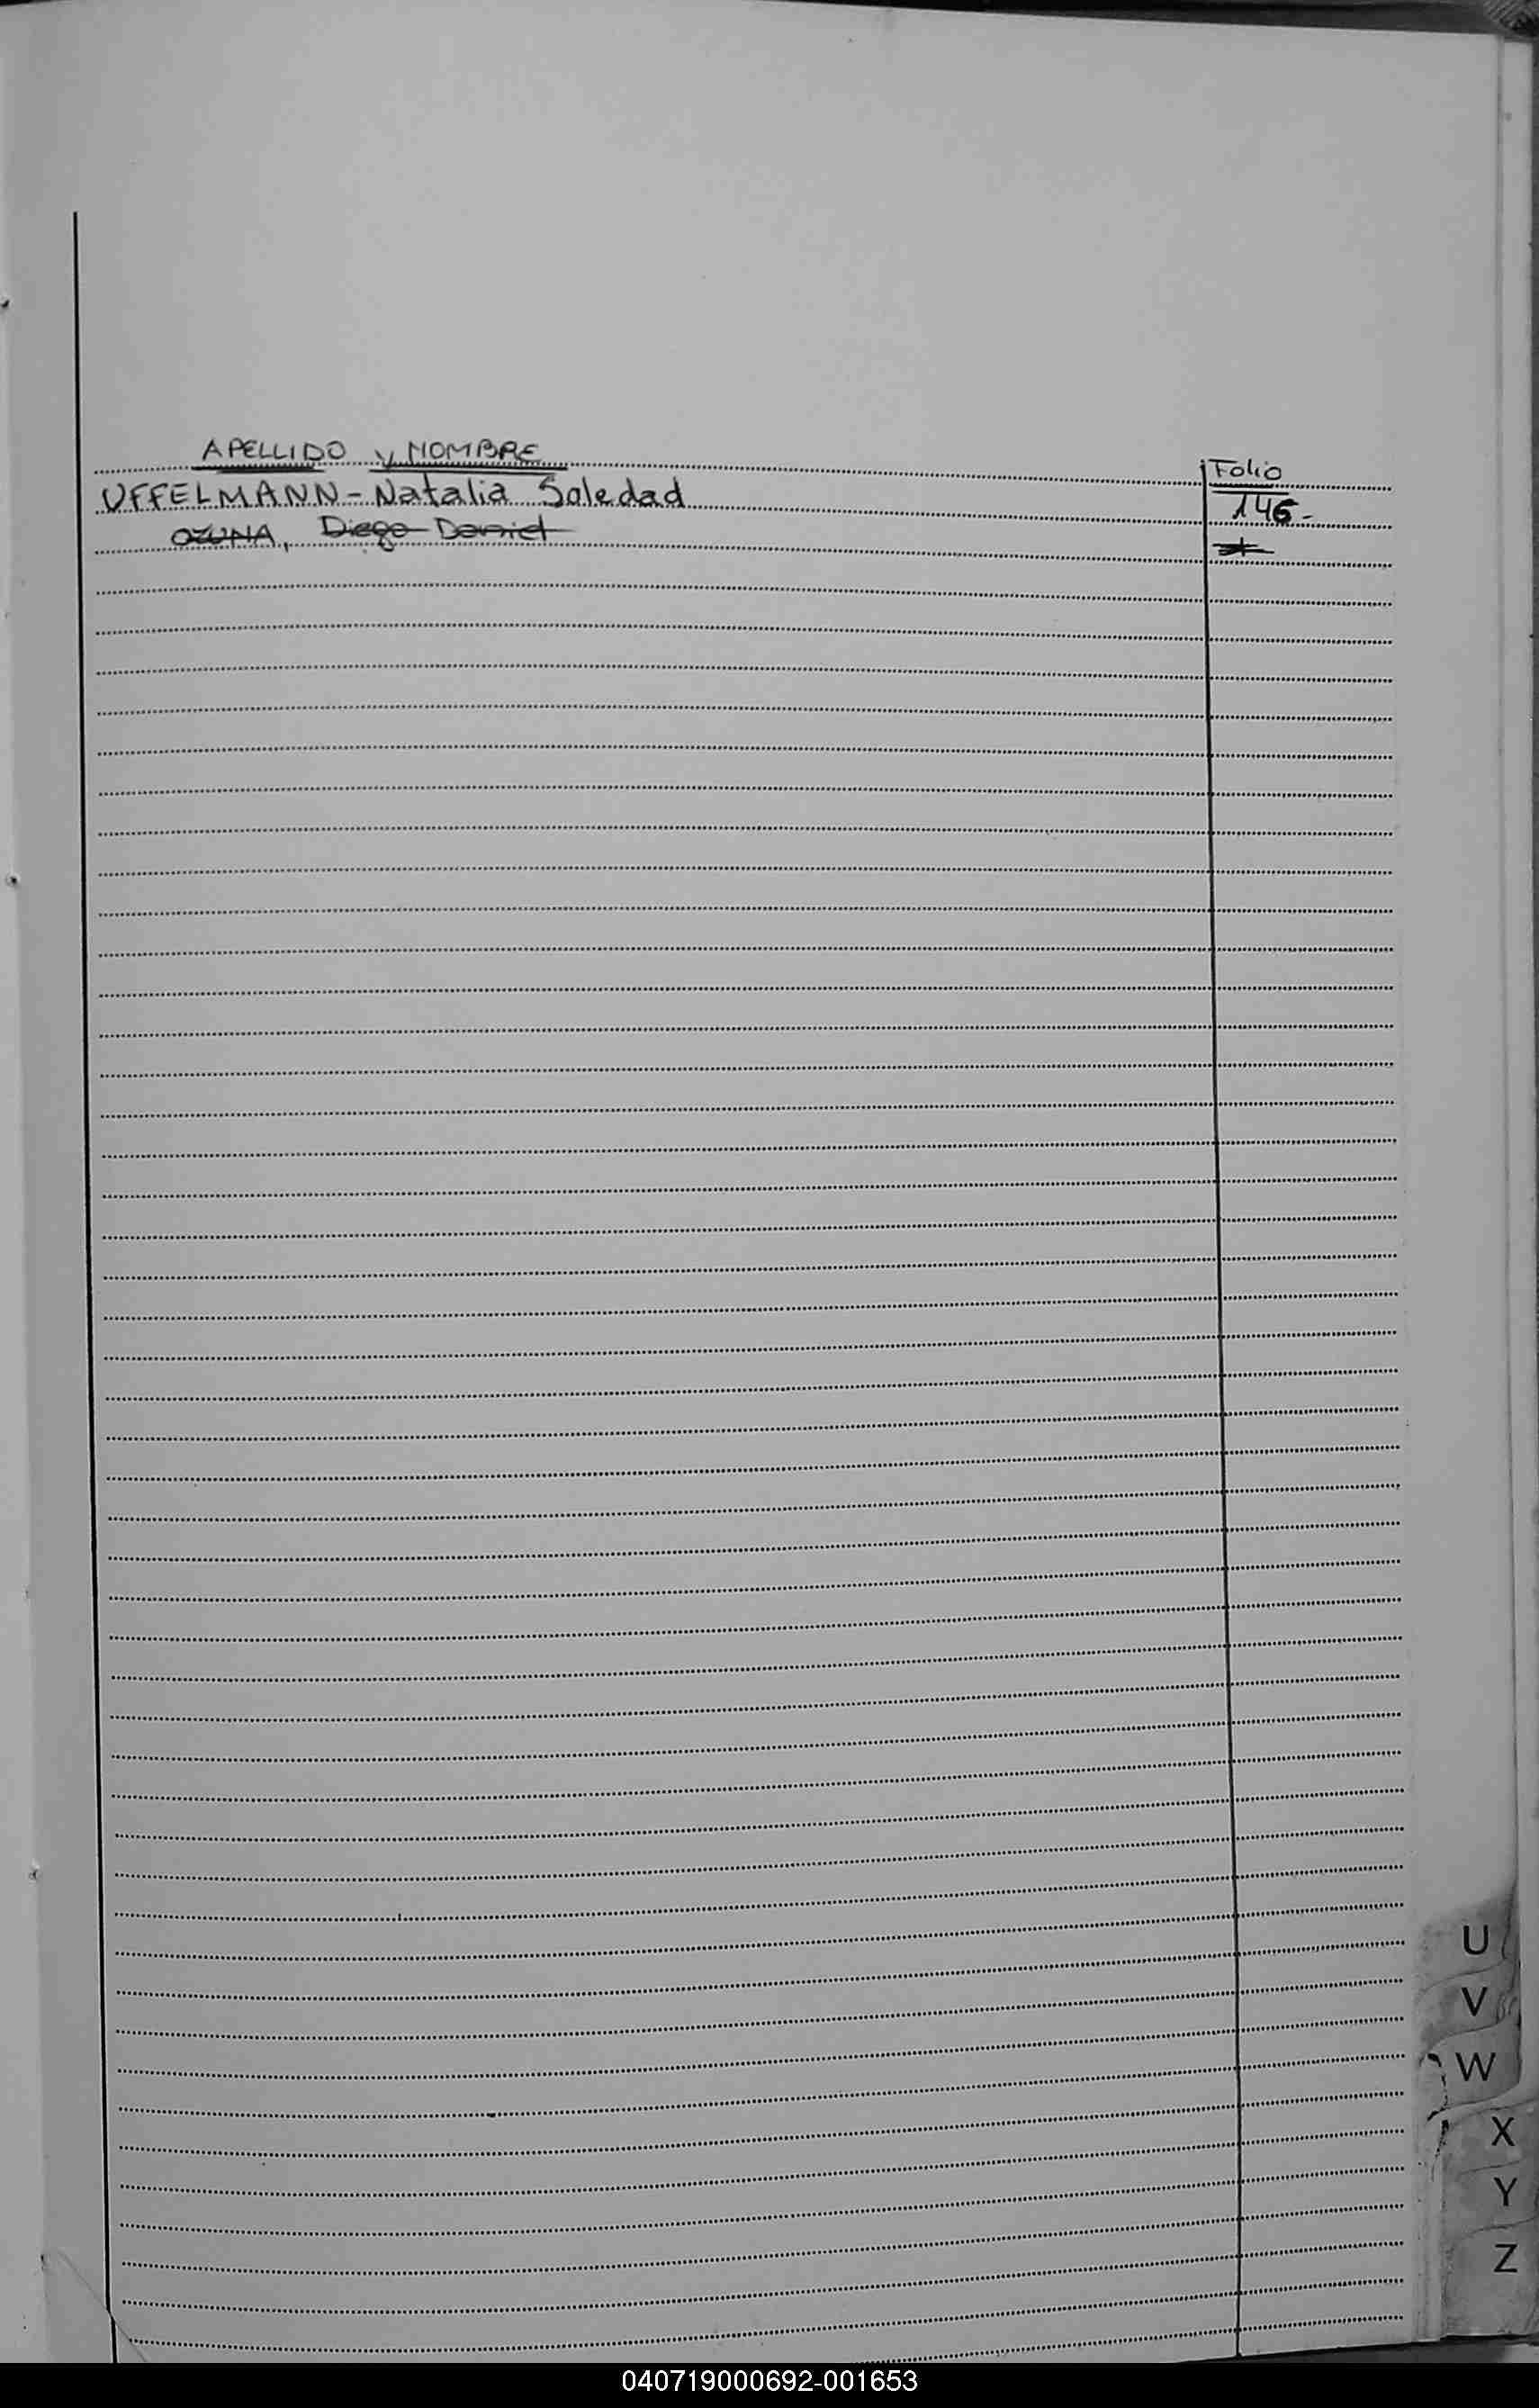 APELLIDO y NOMBRE
Folio
UFFELMANN - Natalia Soledad
146-
OZUNA, Diego Daniel
U
V
W
X
Y
Z
040719000692-001653